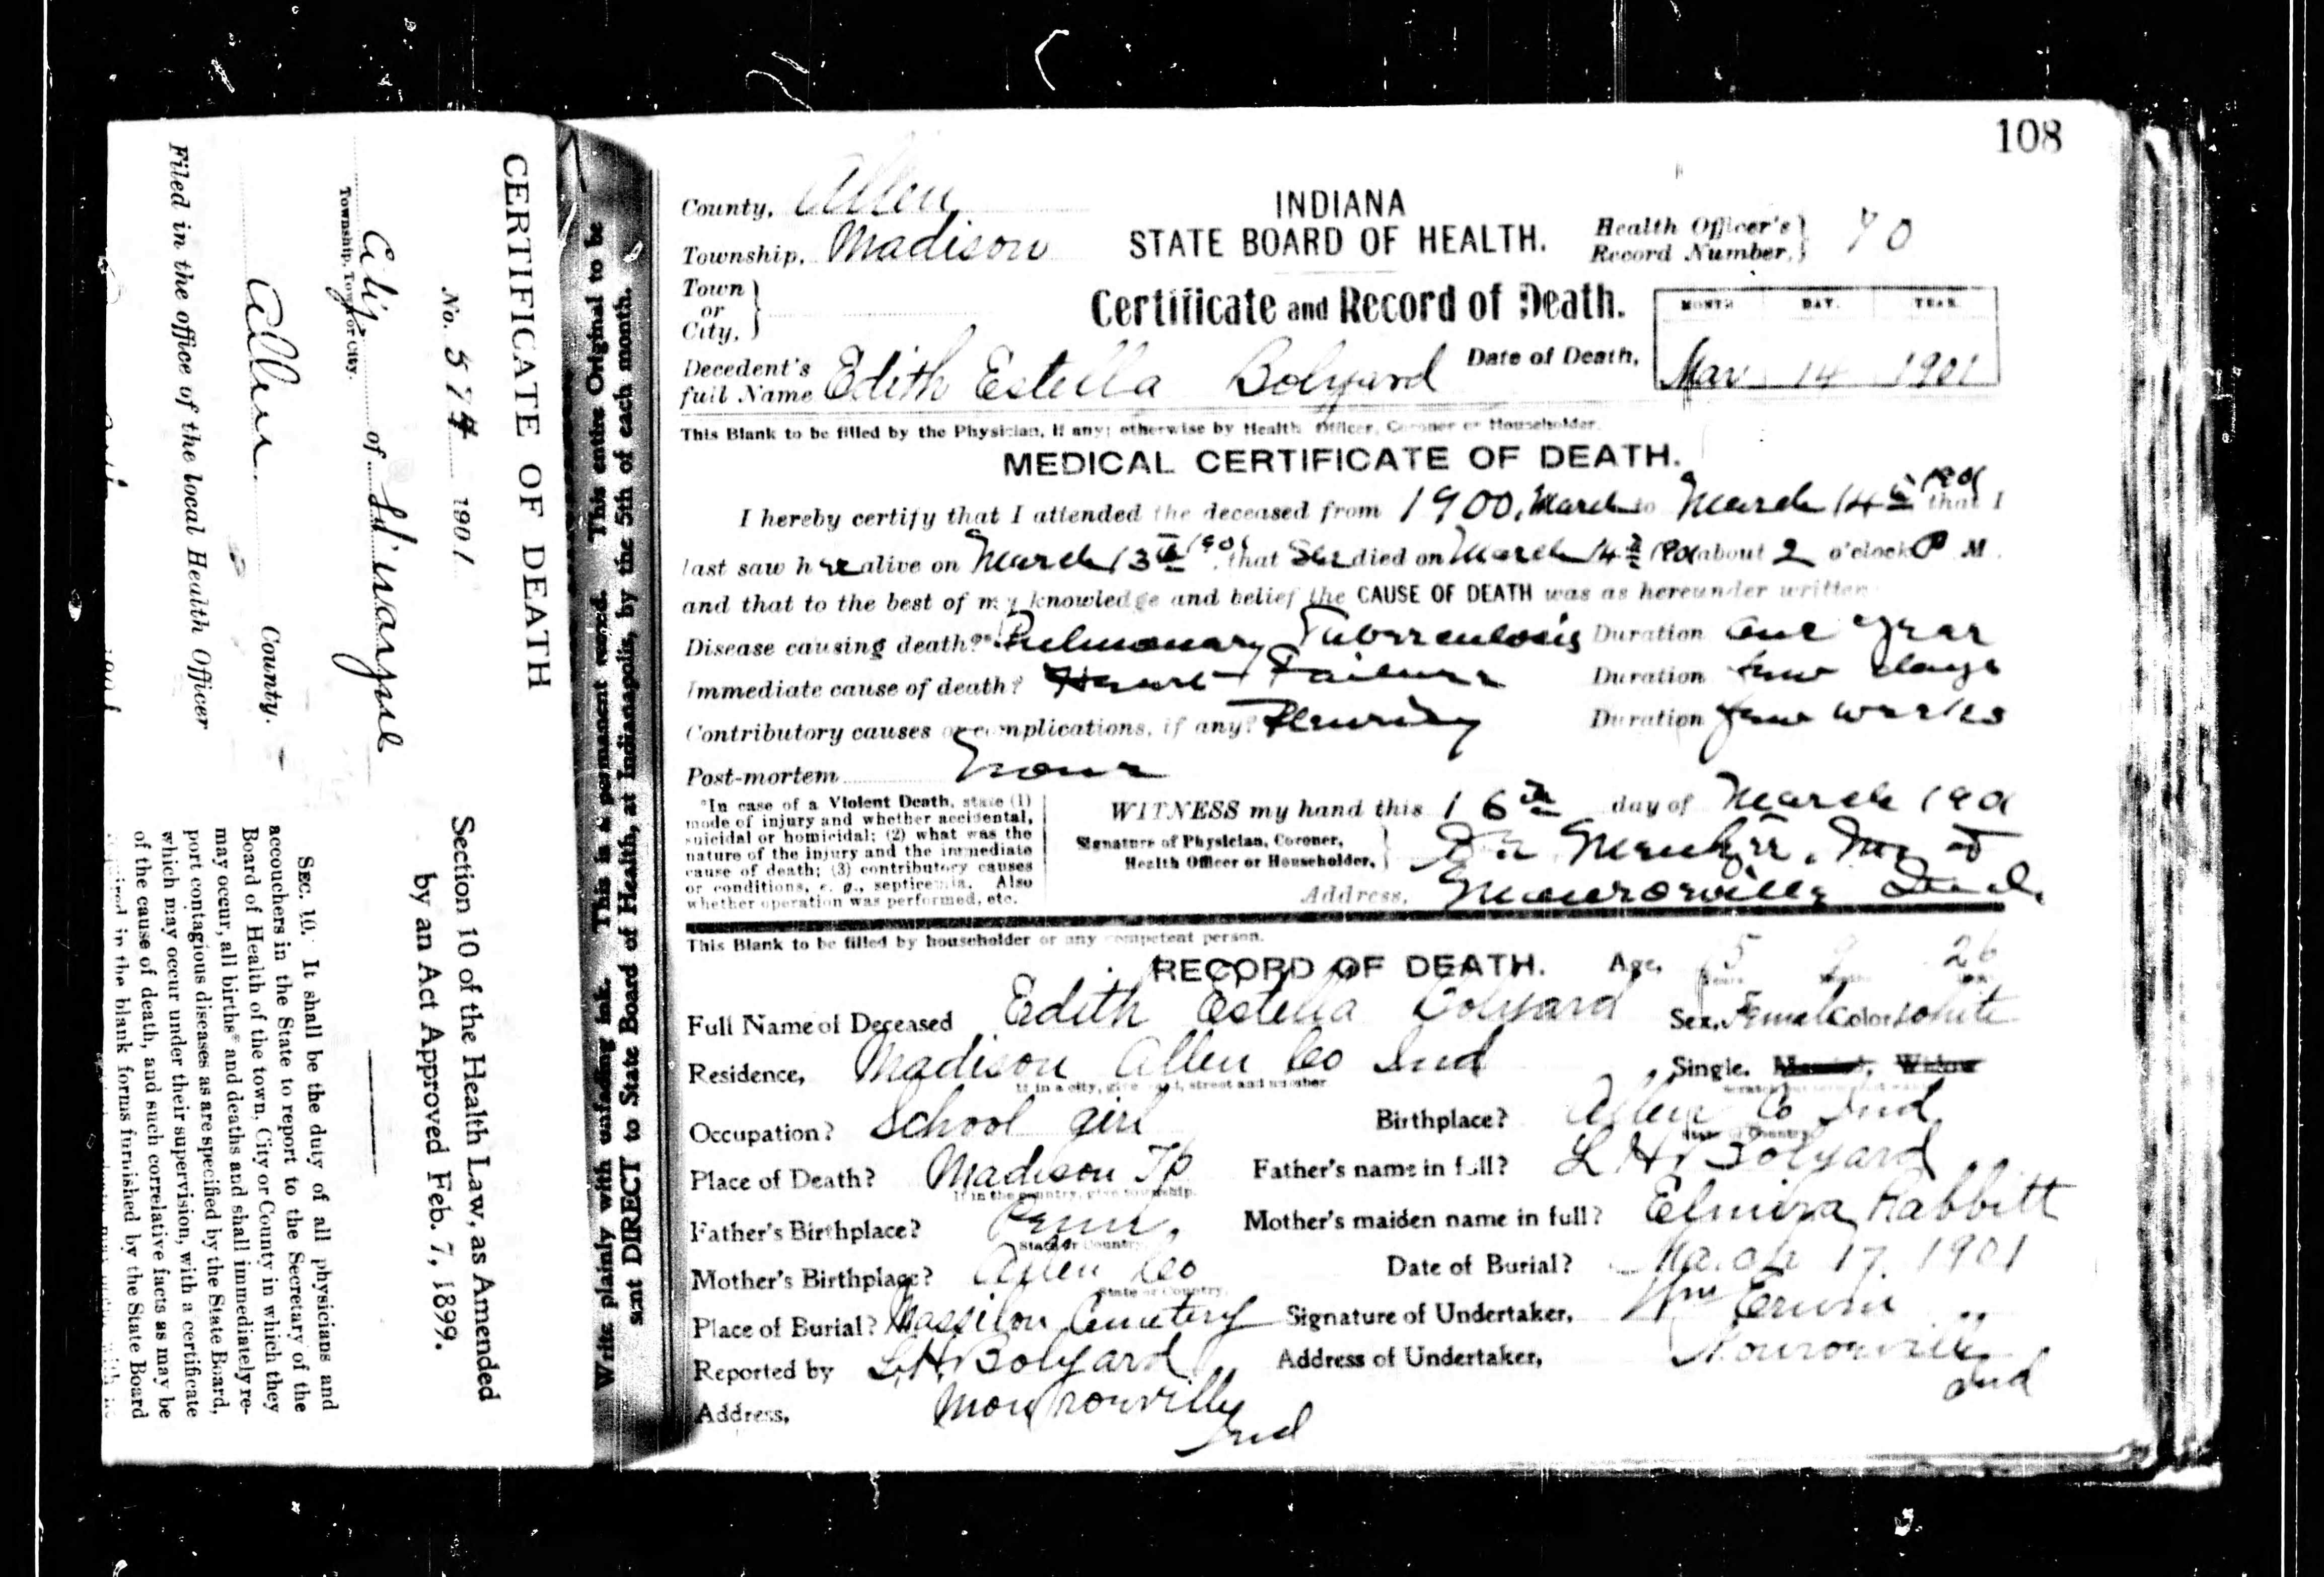 108
County, Allen
INDIANA
STATE BOARD OF HEALTH.
Health Officer's
Record Number, 70
Township, Madison
Town
or
City,
Certificate and Record of Death.
MONTH DAY. YEAR.
Decedent's
full Name Edith Estella Bolyard Date of Death, Mar 14 1901
This Blank to be filled by the Physician, if any; otherwise by Health Officer, Coroner or Householder.
MEDICAL CERTIFICATE OF DEATH.
I hereby certify that I attended the deceased from 1900, March to March 14th 1901 that I
last saw her alive on March 13th 1901 that She died on March 14th 1901 about 2 o'clock P M.
and that to the best of my knowledge and belief the CAUSE OF DEATH was as hereunder written
Disease causing death?* Pulmonary Tuberculosis Duration One year
Immediate cause of death? Heart Failure Duration few days
Contributory causes or complications, if any? Pleurisy Duration few weeks
Post-mortem none
*In case of a Violent Death, state (1)
mode of injury and whether accidental,
suicidal or homicidal; (2) what was the
nature of the injury and the immediate
cause of death; (3) contributory causes
or conditions, e. g., septicemia. Also
whether operation was performed, etc.
WITNESS my hand this 16th day of March 1901
Signature of Physician, Coroner,
Health Officer or Householder,
Address, Monroeville Ind.
This Blank to be filled by householder or any competent person.
RECORD OF DEATH. Age, 26
Full Name of Deceased Edith Estella Bolyard Sex, Female Color, white
Residence, Madison Allen Co Ind Single. Married, Widow
If in a city, give ward, street and number
Occupation? School girl Birthplace? Allen Co Ind
State or Country
Place of Death? Madison Tp Father's name in full? L H Bolyard
If in the country, give township.
Father's Birthplace? Penn. Mother's maiden name in full? Elmira Rabbitt
State or Country
Mother's Birthplace? Allen Co Date of Burial? March 17, 1901
State or Country.
Place of Burial? Massilon Cemetery Signature of Undertaker, Wm Erwin
Reported by L.H. Bolyard Address of Undertaker, Monroeville
Ind
Address, Monroeville
Ind
Write plainly with unfading ink. This is a permanent record. This entire Original to be
sent DIRECT to State Board of Health, at Indianapolis, by the 5th of each month.
CERTIFICATE OF DEATH
No. 574 1901
City of Ft Wayne
Township, Town or City.
Allen County.
Filed in the office of the local Health Officer
Section 10 of the Health Law, as Amended
by an Act Approved Feb. 7, 1899.
SEC. 10. It shall be the duty of all physicians and
accouchers in the State to report to the Secretary of the
Board of Health of the town, City or County in which they
may occur, all births and deaths and shall immediately re-
port contagious diseases as are specified by the State Board,
which may occur under their supervision, with a certificate
of the cause of death, and such correlative facts as may be
required in the blank forms furnished by the State Board